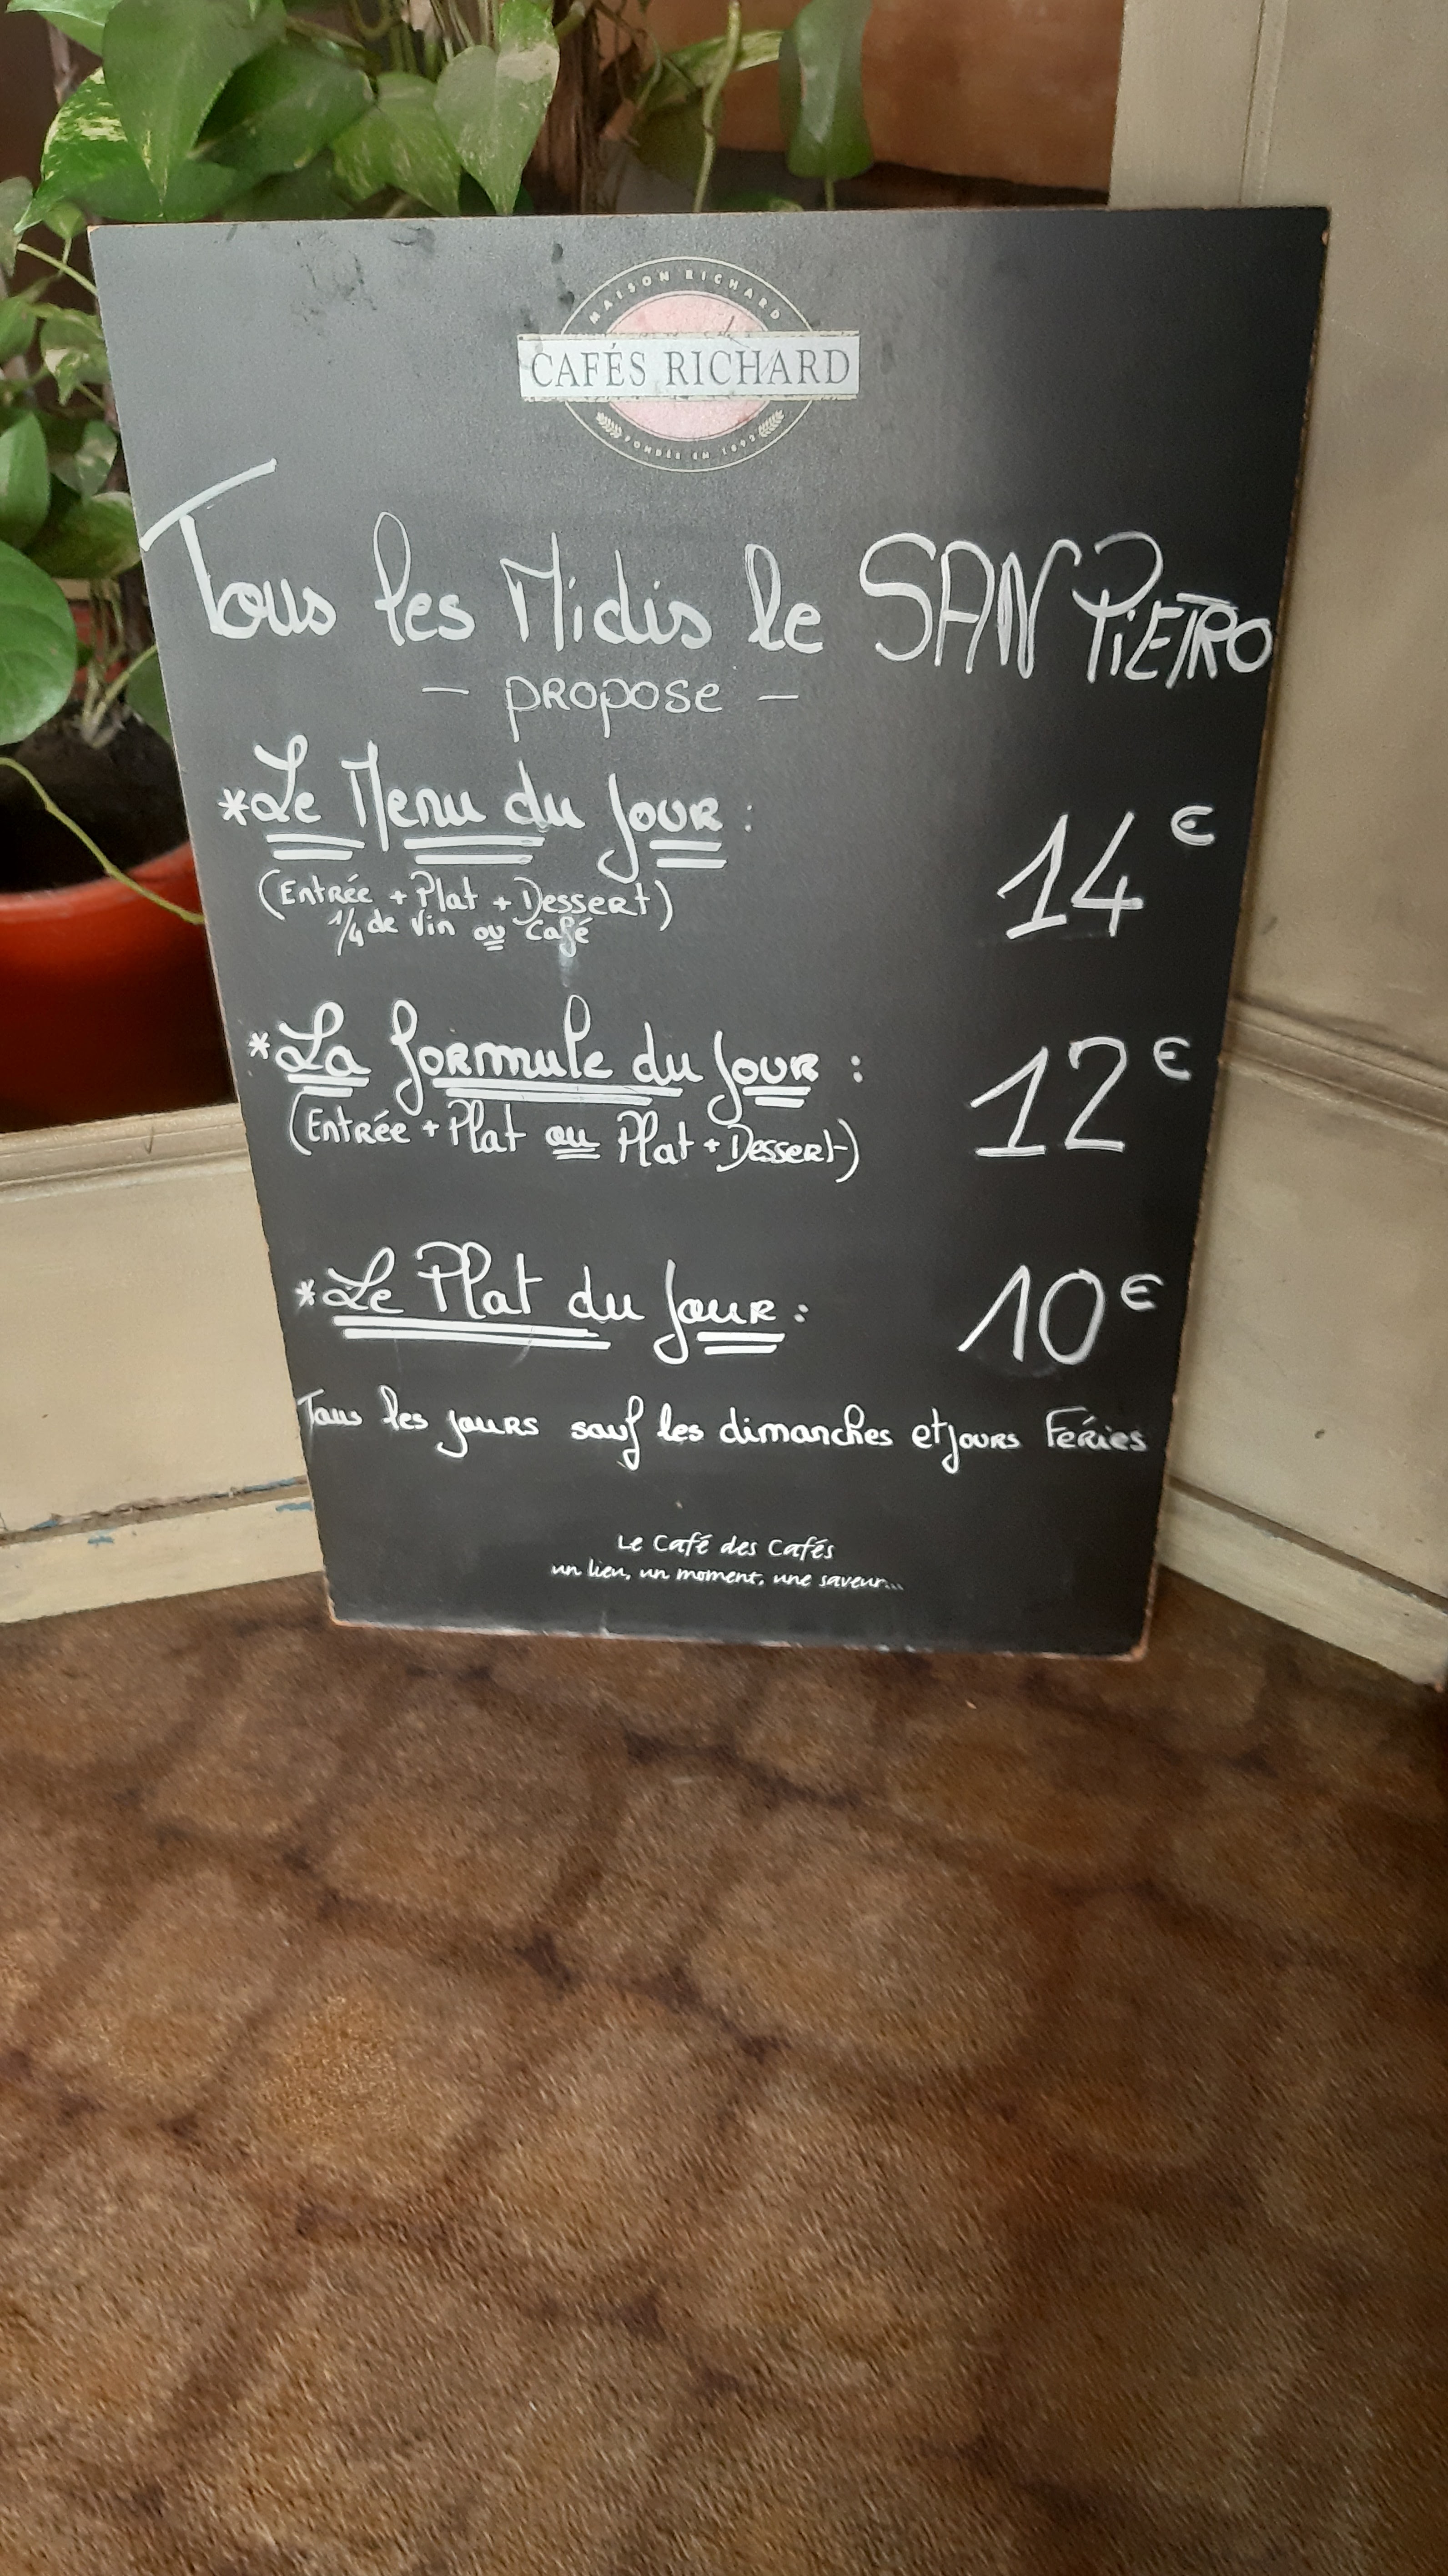 MAISON RICHARD
CAFÉS RICHARD
FONDÉE EN 1892
Tous les Midis le SAN PiETRO
- PROPOSE -
*Le Menu du Jour : 14€
(Entrée + Plat + Dessert)
1/4 de Vin ou Café
*La formule du Jour : 12€
(Entrée + Plat ou Plat + Dessert)
*Le Plat du Jour : 10€
Tous les jours sauf les dimanches et jours Fériés
Le Café des Cafés
un lieu, un moment, une saveur...